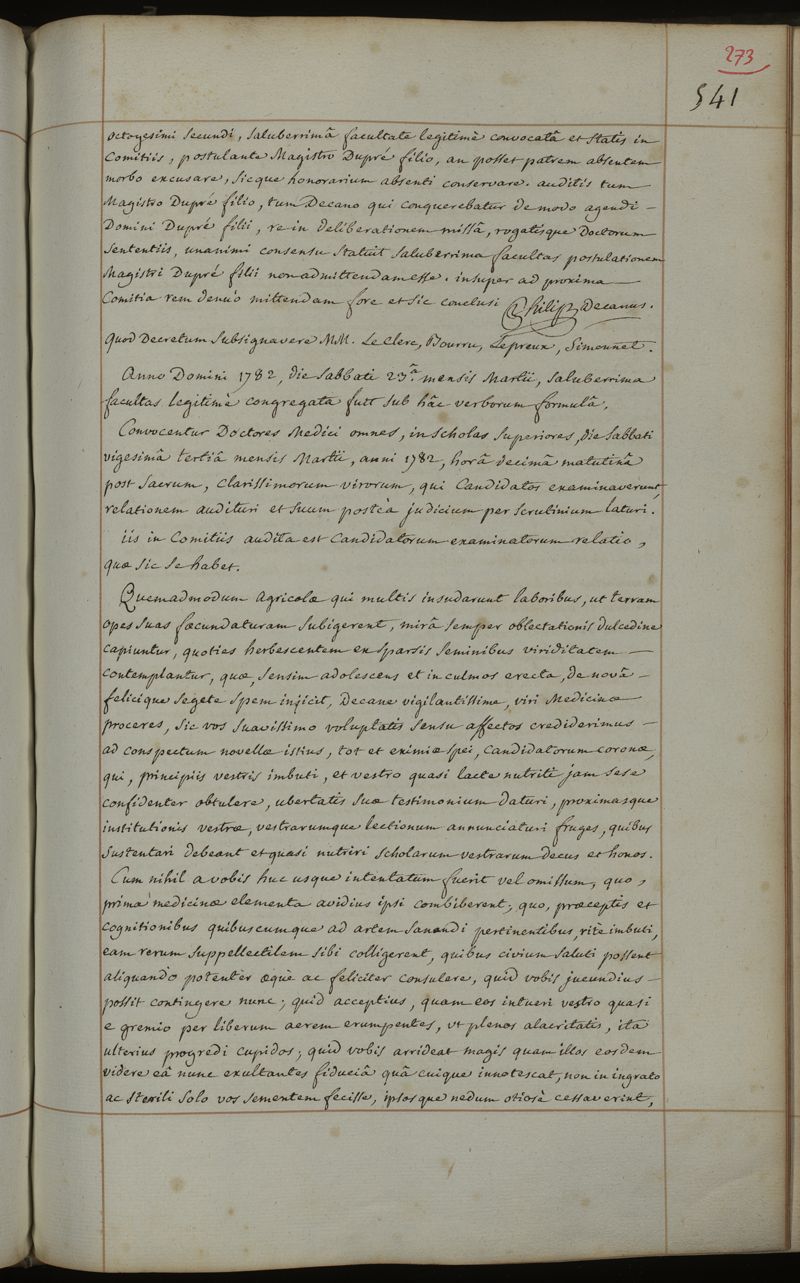 273
541
octogesimi secundi, saluberrimâ facultate legitimè convocatâ et statis in
Comitiis, postulante Magistro Dupré filio, an posset patrem absentem
morbo excusare, sicque honorarium absenti conservare. auditis tum
Magistro Dupré filio, tum Decano qui conquerebatur de modo agendi —
Domini Dupré filii, re in deliberationem missâ, rogatisque Doctorum
sententiis, unanimi consensu statuit saluberrima facultas postulationem
Magistri Dupré filii non admittendam esse. insuper ad proxima —
Comitia rem denuò mittendam fore et sic conclusi Philip Decanus.
Quod Decretum subsignavere MM. Le Clerc, Bourru, Lepreux, Simonnet.
Anno Domini 1782, die sabbati 23.â mensis Martii, saluberrima
facultas legitimè congregata fuit sub hâc verborum formulâ.
Convocentur Doctores Medici omnes, in scholas superiores, die sabbati
vigesimâ tertiâ mensis Martii, anni 1782, horâ decimâ matutinâ
post sacrum, clarissimorum virorum, qui Candidatos examinaverunt,
relationem audituri et suum posteà judicium per scrutinium laturi.
iis in Comitiis audita est Candidatorum examinatorum relatio,
quæ sic se habet.
Quemadmodum agricolæ qui multis insudarunt laboribus, ut terram
opes suas fœcundaturam subigerent, mirâ semper oblectationis dulcedine
capiuntur, quoties herbescentem ex sparsis seminibus viriditatem —
contemplantur, quæ, sensim adolescens et in culmos erecta, de novâ —
felicique segete spem injicit, Decane vigilantissime, viri Medicinæ
proceres, sic vos suavissimo voluptatis sensu affectos crediderimus —
ad conspectum novellæ istius, tot et eximiæ spei, candidatorum coronæ,
qui, principiis vestris imbuti, et vestro quasi lacte nutriti jam sese
confidenter obtulere, ubertatis suæ testimonium daturi, proximasque
institutionis vestræ, vestrarumque lectionum annunciaturi fruges, quibus
sustentari debeant et quasi nutriri scholarum vestrarum decus et honos.
Cum nihil a vobis huc usque intentatum fuerit vel omissum, quo,
prima medicinæ elementa avidius ipsi combiberent; quo, præceptis et
cognitionibus quibuscumque ad artem sanandi pertinentibus, ritè imbuti,
eam rerum suppellectilem sibi colligerent, quibus civium saluti possent
aliquando potenter æquè ac feliciter consulere, quid vobis jucundius —
possit contingere nunc; quid acceptius, quam eos intueri vestro quasi
e gremio per liberum aerem erumpentes, ut plenos alacritatis, ita
ulterius progredi cupidos; quid vobis arrideat magis quam illos eosdem
videre eâ nunc exultantes fiduciâ quâ cuique innotescat, non in ingrato
ac sterili solo vos sementem fecisse, ipsosque nedum otiosè cessaverint,